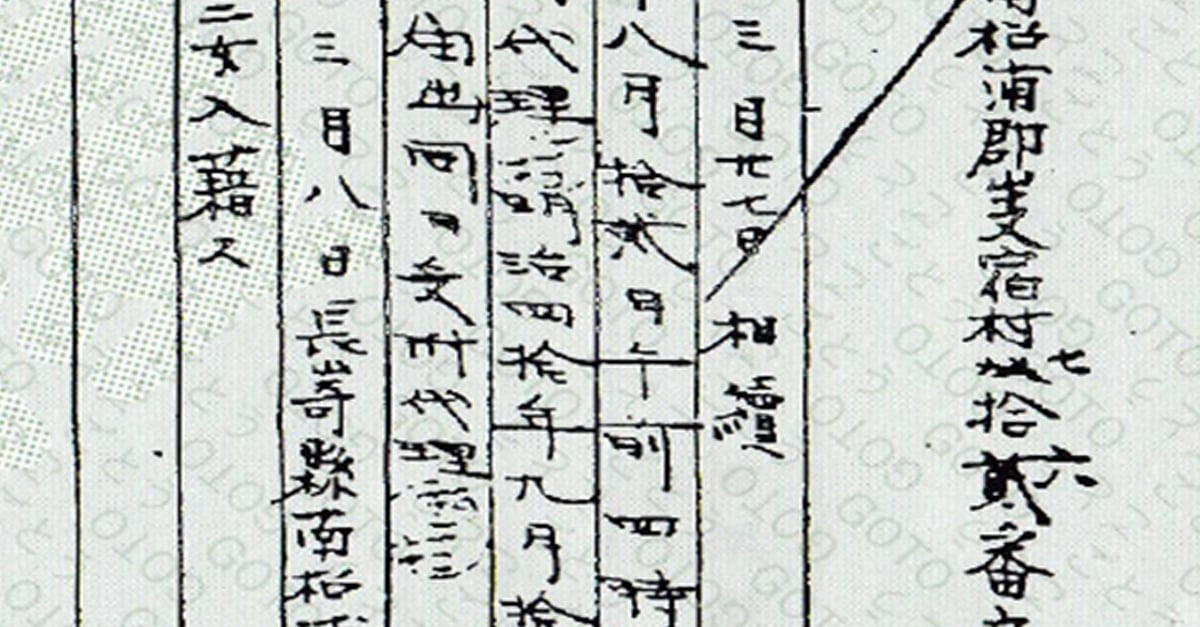 南松浦郡岐宿村拾貳番
七六
三月廿七日相續
八月拾貳日午前四時
代理明治四拾年九月拾
届出同日受附代理
三月八日長崎縣南松浦
二女入籍ス